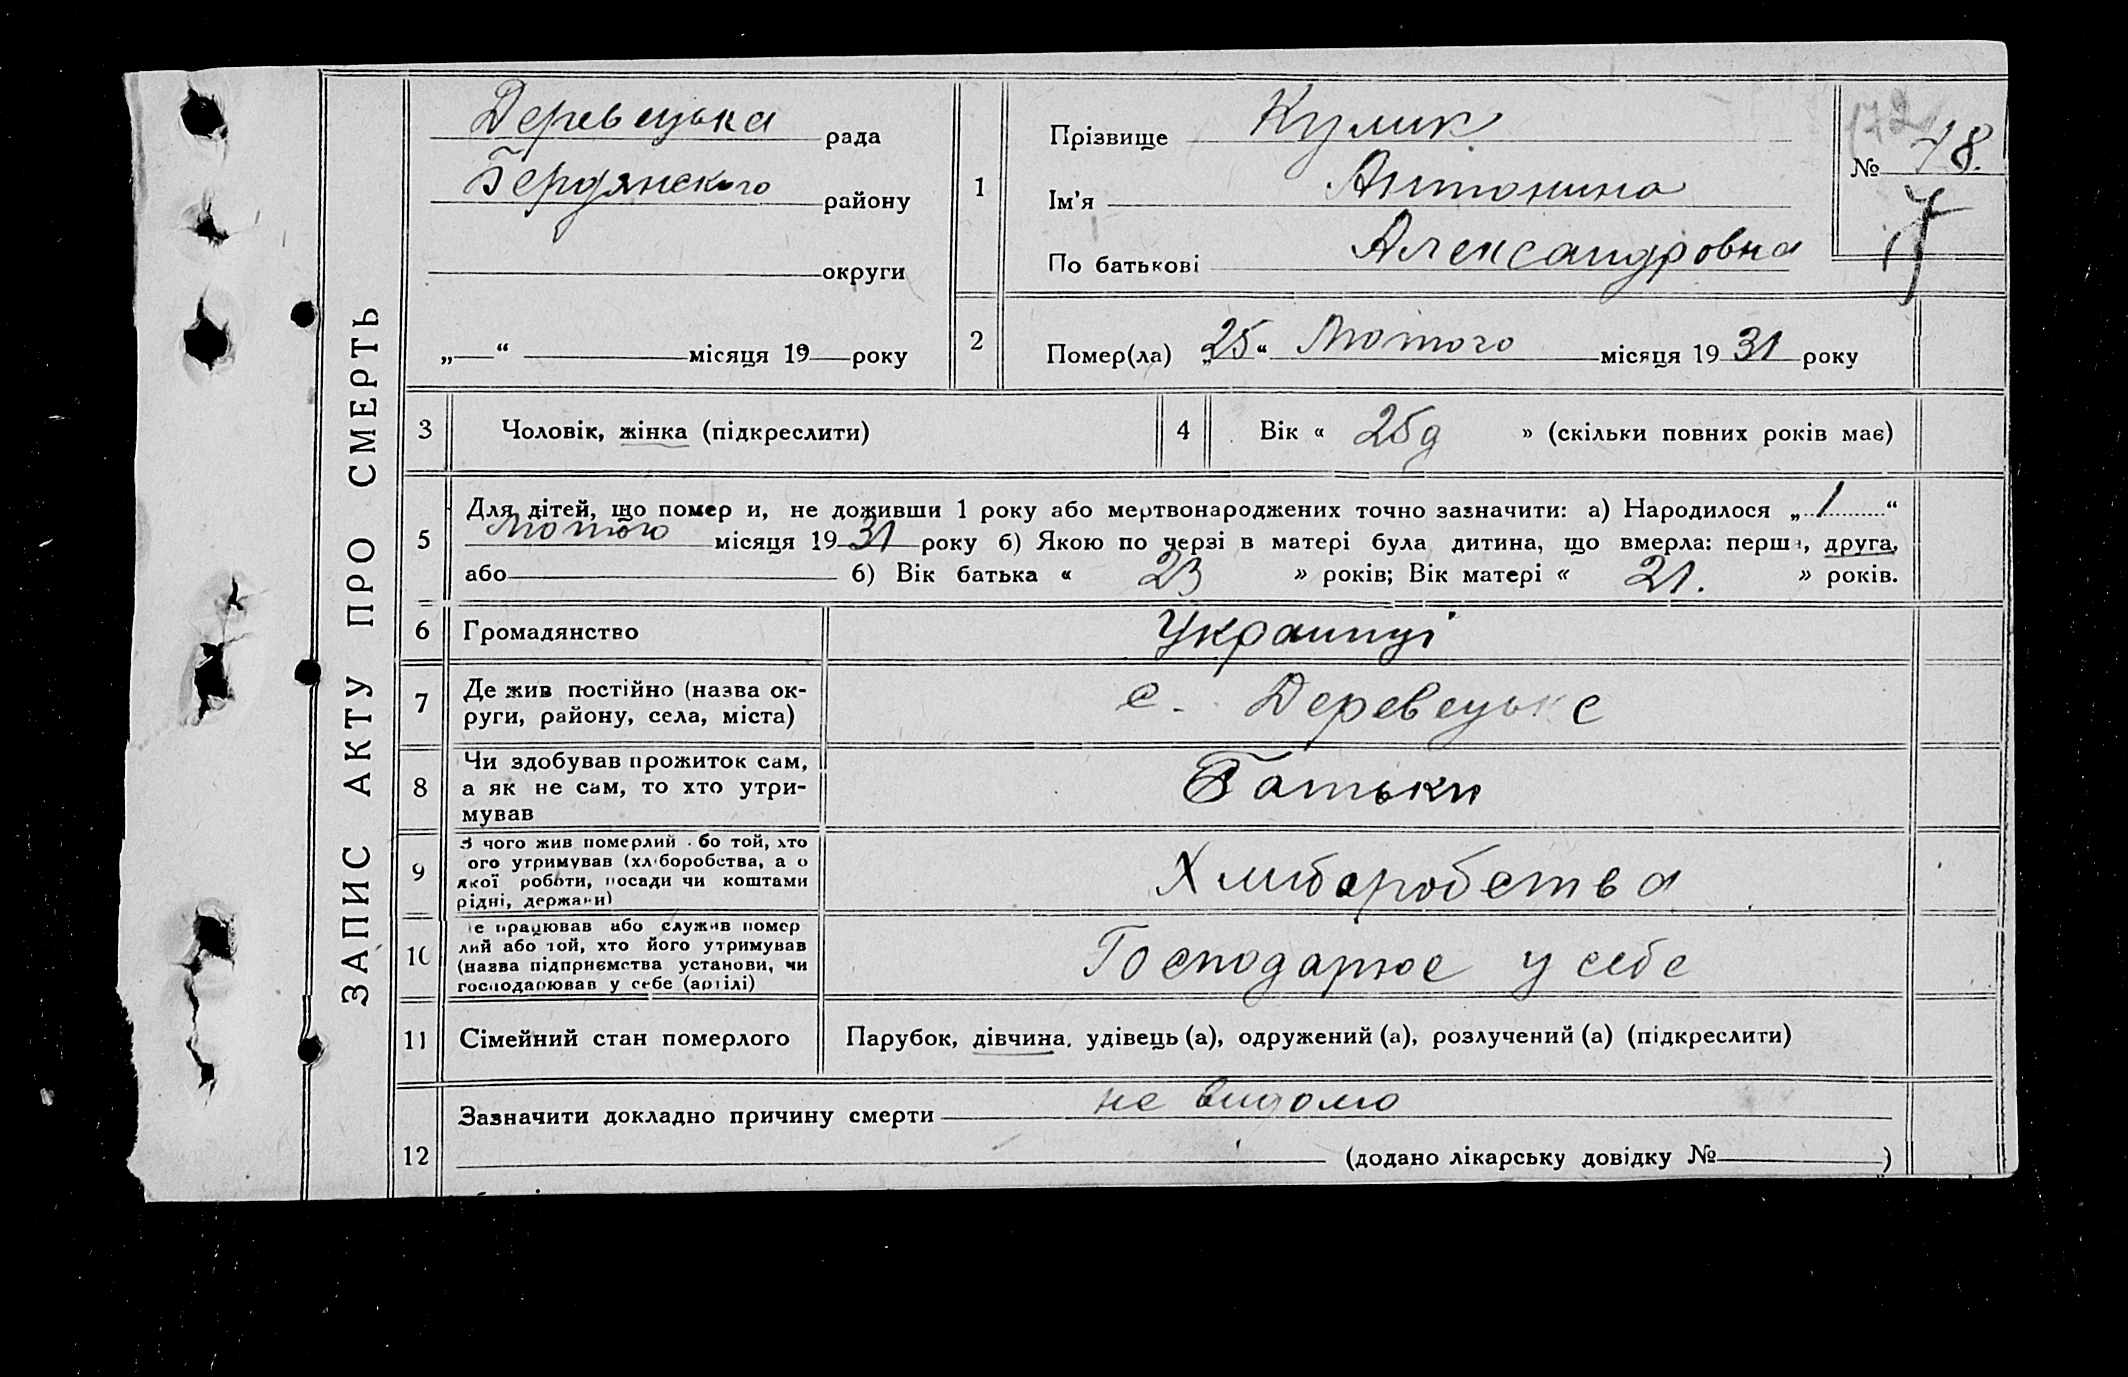 ЗАПИС АКТУ ПРО СМЕРТЬ
Деревецька рада
Бердянского району
округи
„ “ місяця 19 року
1
Прізвище Кулик
Ім'я Антонина
По батькові Александровна
172
№ 78.
2
Помер(ла) „25“ Лютого місяця 1931 року
3 Чоловік, жінка (підкреслити)
4 Вік « 25д » (скільки повних років має)
5
Для дітей, що помер и, не доживши 1 року або мертвонароджених точно зазначити: а) Народилося „1“
Лютого місяця 1931 року б) Якою по черзі в матері була дитина, що вмерла: перша, друга,
або б) Вік батька « 23 » років; Вік матері « 21. » років.
6 Громадянство Украинці
7 Де жив постійно (назва ок-
руги, району, села, міста) с. Деревецьке
8
Чи здобував прожиток сам,
а як не сам, то хто утри-
мував
Батьки
9
З чого жив померлий бо той, хто
ого утримував (хліборобства, а о
якої роботи, посади чи коштами
рідні, держави)
Хлиборобства
10
е працював або служив помер
лий або той, хто його утримував
(назва підприємства установи, чи
господарював у себе (артілі)
Господарює у себе
11 Сімейний стан померлого Парубок, дівчина, удівець (а), одружений (а), розлучений (а) (підкреслити)
12
Зазначити докладно причину смерти не видомо
(додано лікарську довідку № )